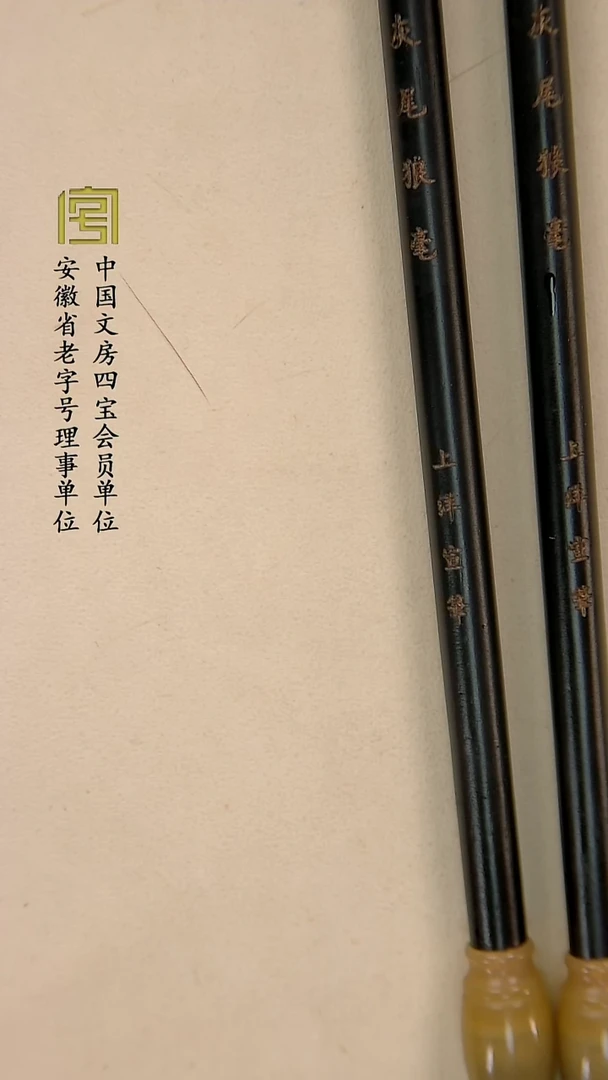 中国文房四宝会员单位
安徽省老字号理事单位
灰尾狼毫
上宣筆
灰尾狼毫
上宣筆